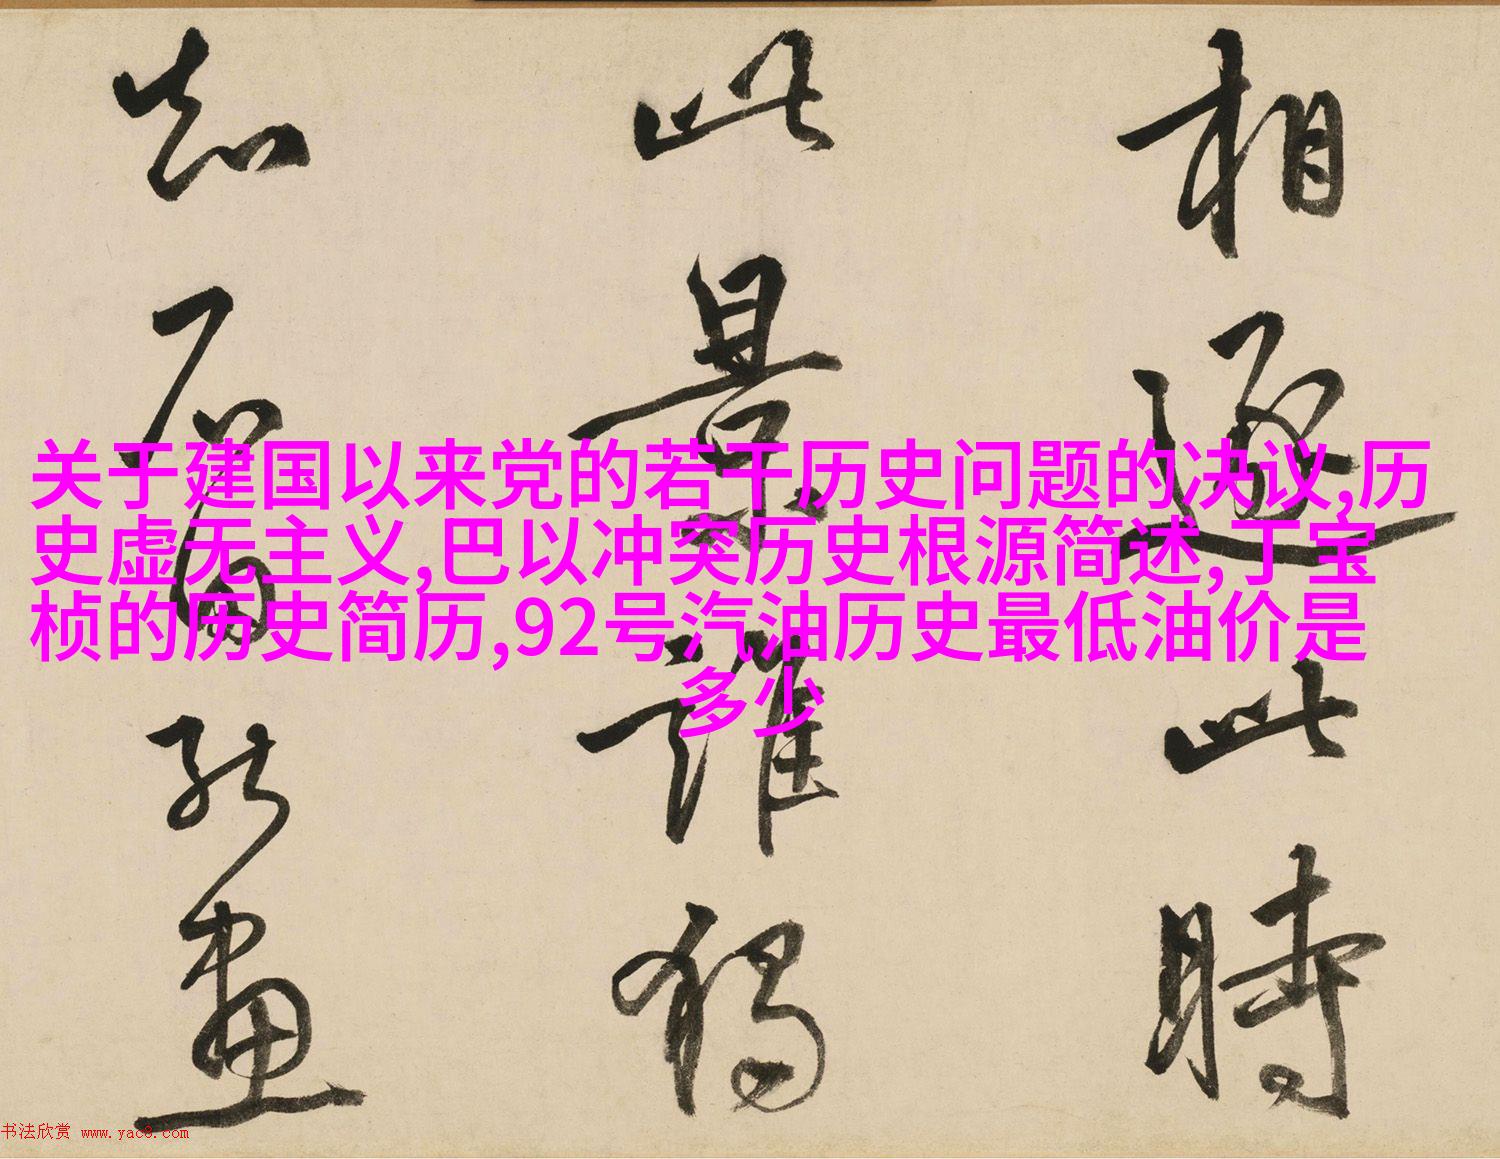 相逐此時
此景誰獨
知 能畫
关于建国以来党的若干历史问题的决议,历
史虚无主义,巴以冲突历史根源简述,丁宝
桢的历史简历,92号汽油历史最低油价是
多少
书法欣赏 www.yac8.com